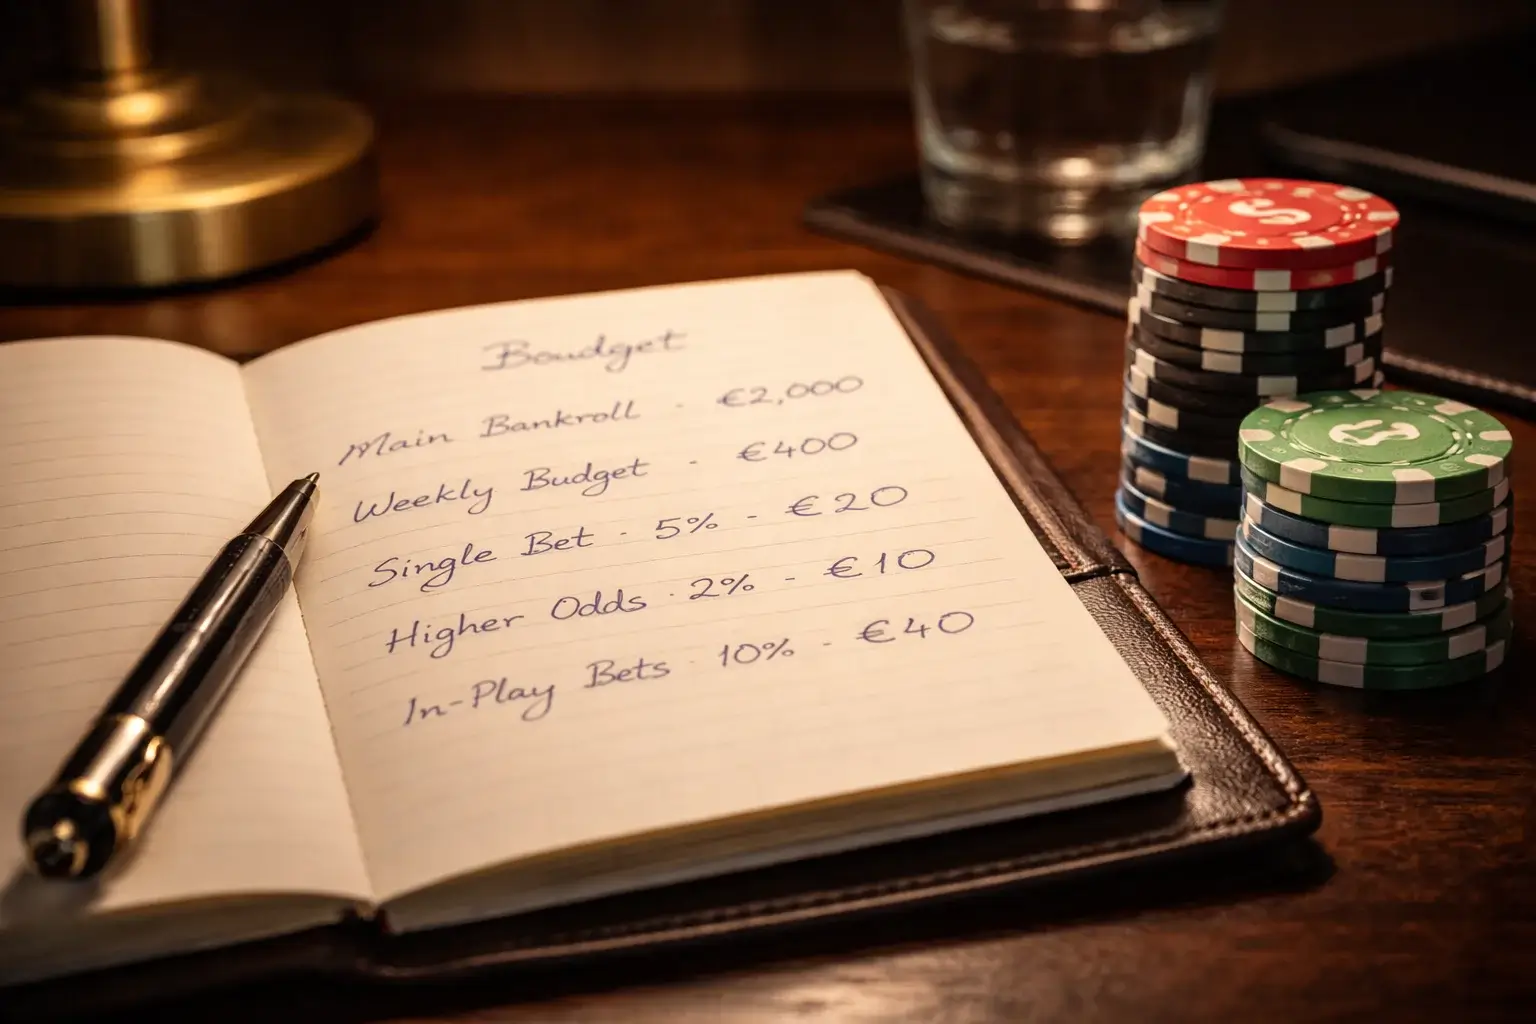 Boudget
Main Bankroll · €2,000
Weekly Budget · €400
Single Bet · 5% - €20
Higher Odds · 2% - €10
In-Play Bets · 10% - €40